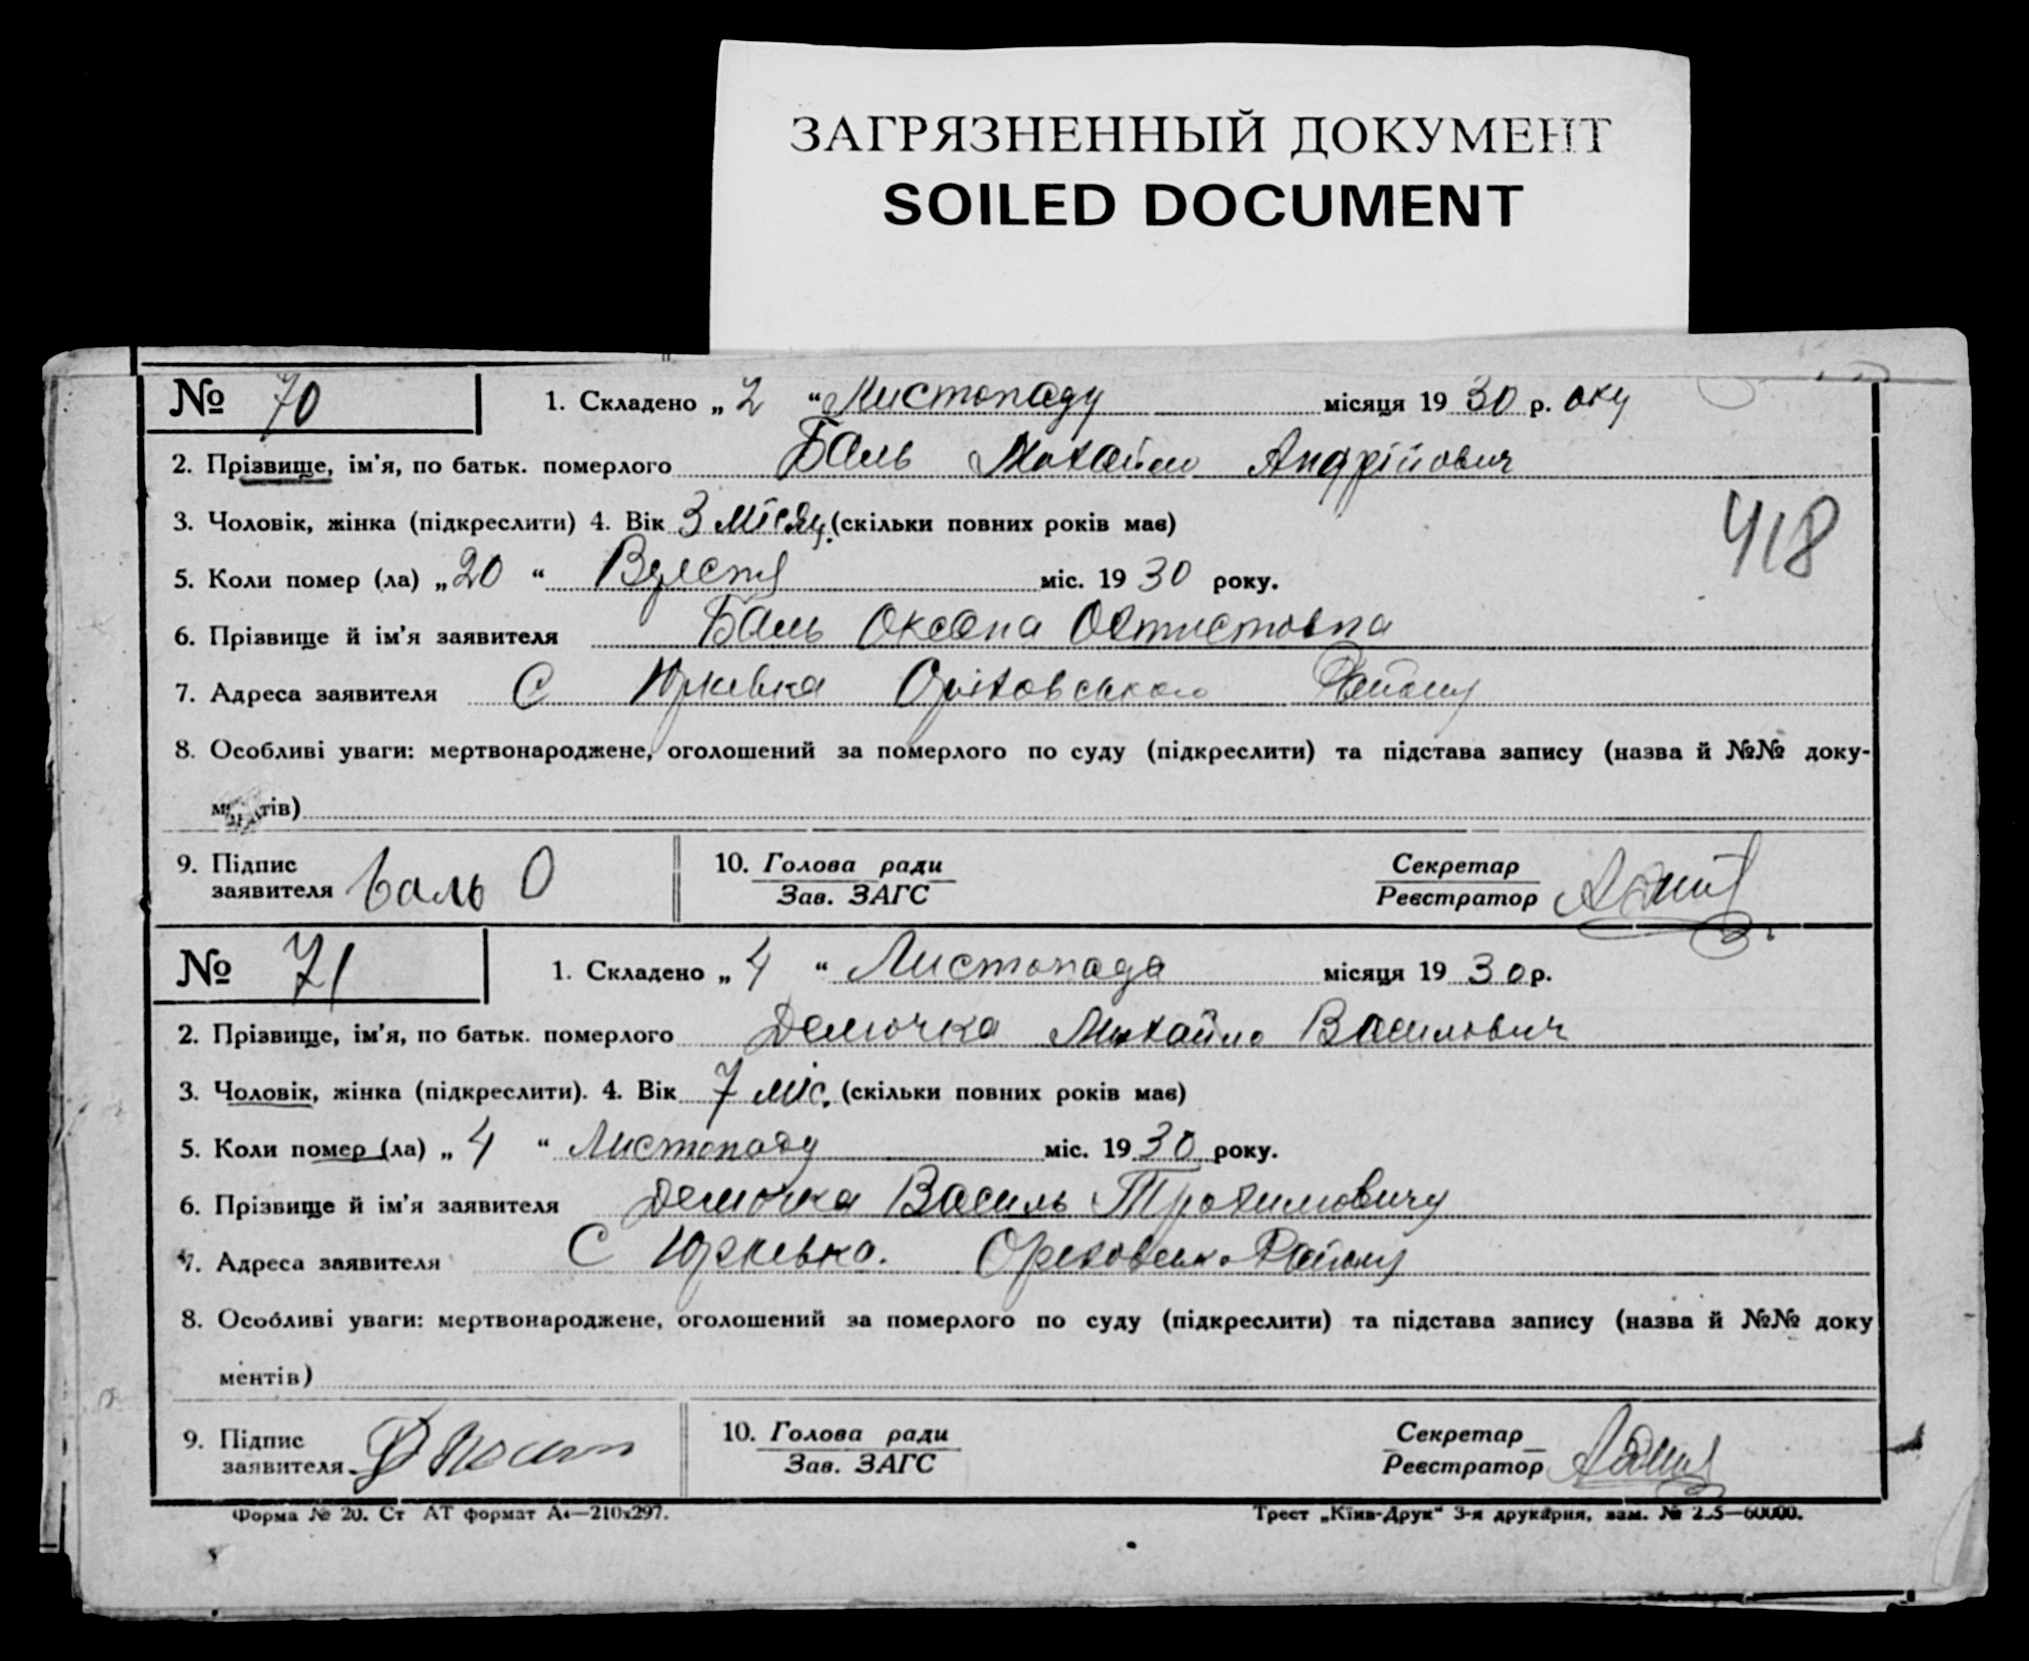 ЗАГРЯЗНЕННЫЙ ДОКУМЕНТ
SOILED DOCUMENT
№ 70 1. Складено „ 2 “ Листопаду місяця 19 30 р. оку
2. Прізвище, ім'я, по батьк. померлого Баль Михайло Андрійович
3. Чоловік, жінка (підкреслити) 4. Вік 3 місяц. (скільки повних років має)
418
5. Коли помер (ла) „ 20 “ міс. 19 30 року.
6. Прізвище й ім'я заявителя Баль Оксана
7. Адреса заявителя С Юрківка Оріховського Району
8. Особливі уваги: мертвонароджене, оголошений за померлого по суду (підкреслити) та підстава запису (назва й №№ доку-
ментів)
9. Підпис заявителя Баль О 10. Голова ради Секретар
Зав. ЗАГС Реєстратор
№ 71 1. Складено „ 4 “ Листопада місяця 19 30 р.
2. Прізвище, ім'я, по батьк. померлого Демочка Михайло Василович
3. Чоловік, жінка (підкреслити). 4. Вік 7 міс. (скільки повних років має)
5. Коли помер (ла) „ 4 “ Листопаду міс. 19 30 року.
6. Прізвище й ім'я заявителя Демочка Василь Трохимовичу
7. Адреса заявителя С Юрківка. Ореховсько Району
8. Особливі уваги: мертвонароджене, оголошений за померлого по суду (підкреслити) та підстава запису (назва й №№ доку
ментів)
9. Підпис заявителя 10. Голова ради Секретар
Зав. ЗАГС Реєстратор
Форма № 20. Ст АТ формат А4—210х297. Трест „Київ-Друк“ 3-я друкарня, зам. №